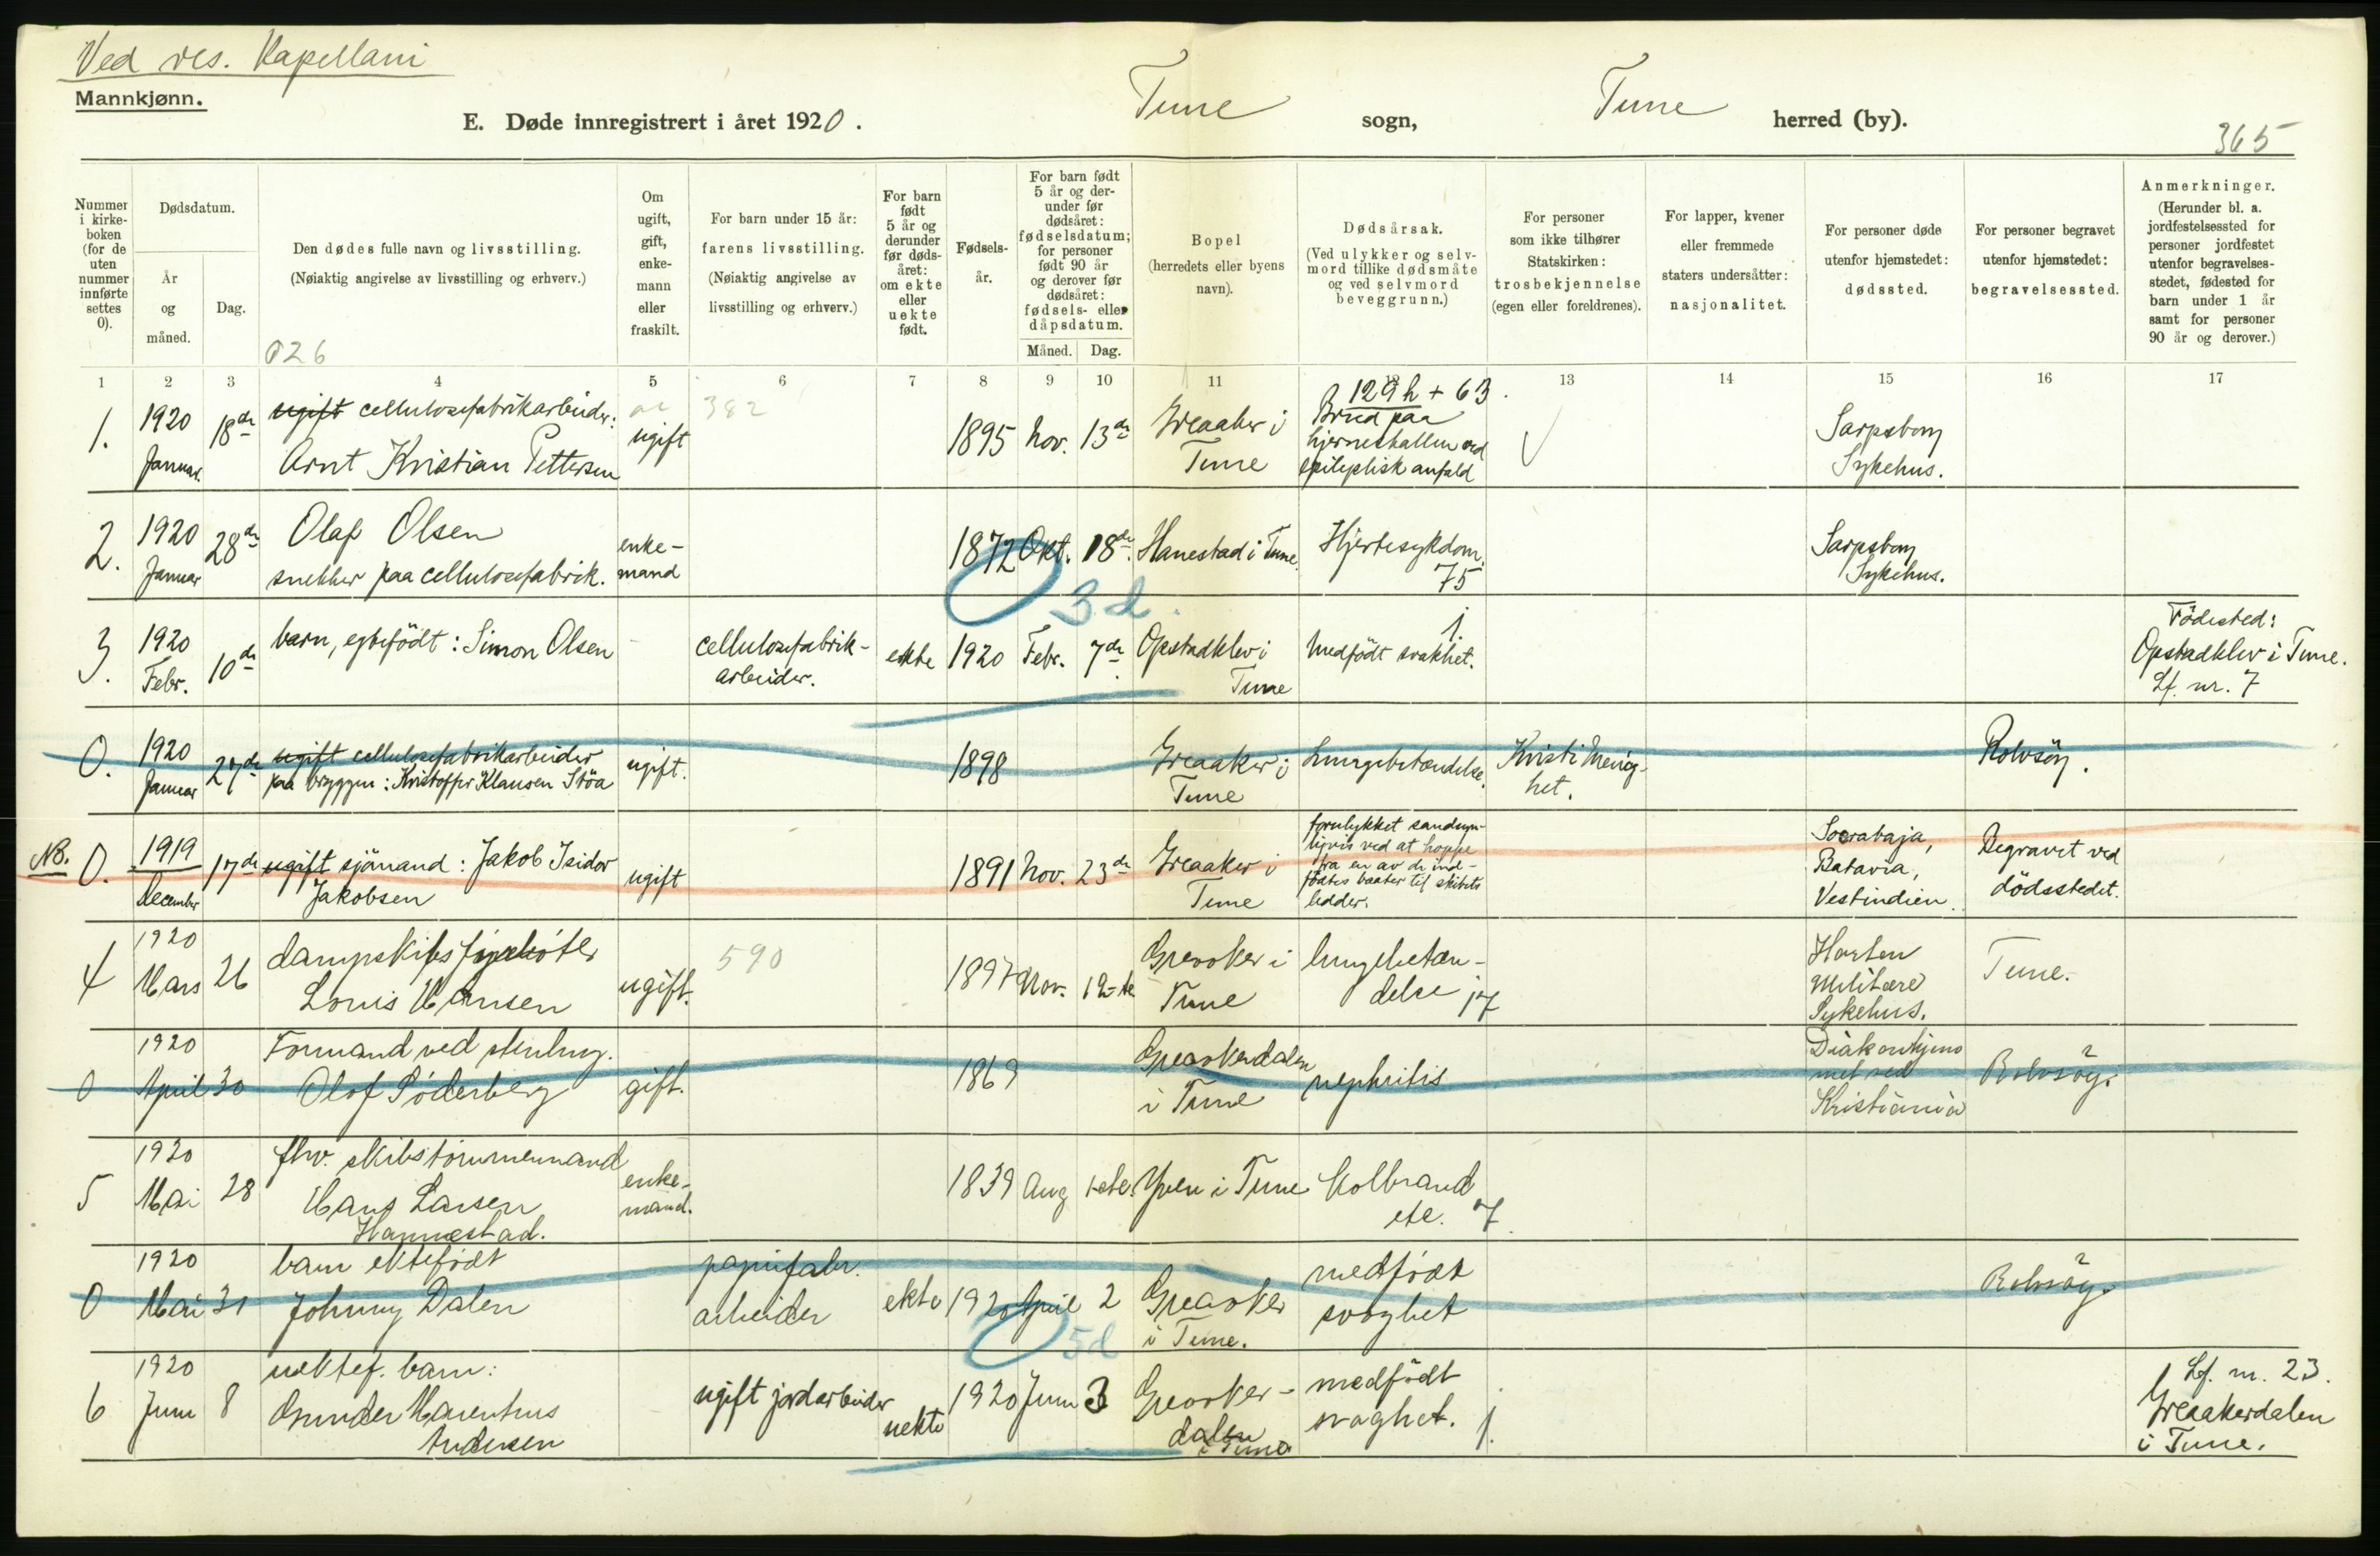 Ved res. Kapellani
Mannkjønn.
E. Døde innregistrert i året 1920.
Tune sogn, Tune herred (by).
365
Nummer
i kirke-
boken
(for de
uten
nummer
innførte
settes
0).
Dødsdatum.
År
og
måned.
Dag.
Den dødes fulle navn og livsstilling.
(Nøiaktig angivelse av livsstilling og erhverv.)
026
Om
ugift,
gift,
enke-
mann
eller
fraskilt.
For barn under 15 år:
farens livsstilling.
(Nøiaktig angivelse av
livsstilling og erhverv.)
For barn
født
5 år og
derunder
før døds-
året:
om ekte
eller
uekte
født.
Fødsels-
år.
For barn født
5 år og der-
under før
dødsåret:
fødselsdatum;
for personer
født 90 år
og derover før
dødsåret:
fødsels- eller
dåpsdatum.
Måned. Dag.
Bopel
(herredets eller byens
navn).
Dødsårsak.
(Ved ulykker og selv-
mord tillike dødsmåte
og ved selvmord
beveggrunn.)
For personer
som ikke tilhører
Statskirken:
trosbekjennelse
(egen eller foreldrenes).
For lapper, kvener
eller fremmede
staters undersåtter:
nasjonalitet.
For personer døde
utenfor hjemstedet:
dødssted.
For personer begravet
utenfor hjemstedet:
begravelsessted.
Anmerkninger.
(Herunder bl. a.
jordfestelsessted for
personer jordfestet
utenfor begravelses-
stedet, fødested for
barn under 1 år
samt for personer
90 år og derover.)
1 2 3 4 5 6 7 8 9 10 11 12 13 14 15 16 17
1.
1920
Januar.
18de
ugift cellulosefabrikarbeider:
Arnt Kristian Pettersen
ugift
382
1895 Nov. 13de
Greaaker i
Tune
129h + 63.
Brud paa
hjerneskallen ved
epileptisk anfald
Sarpsborg
Sykehus.
2.
1920
Januar
28de
Olaf Olsen
snekker paa cellulosefabrik.
enke-
mand
1872 Okt. 18de
Hanestad i Tune.
Hjertesykdom.
75
Sarpsborg
Sykehus.
3 d.
3.
1920
Febr.
10de
barn, egtefödt: Simon Olsen
cellulosefabrik-
arbeider.
ekte
1920 Febr. 7de
Opstadklev i
Tune
1.
Medfödt svakhet.
Födested:
Opstadklev i Tune.
Lf. nr. 7
0.
1920
Januar
27de
ugift cellulosefabrikarbeider
paa bryggen: Kristoffer Klausen Stöa
ugift.
1898
Greaaker i
Tune
Lungebetændelse.
Kristi Menig-
het.
Rolvsöy.
NB.
0.
1919
December
17de
ugift sjömand: Jakob Isidor
Jakobsen
ugift
1891 Nov. 23de
Greaaker i
Tune
forulykket sandsyn-
ligvis ved at hoppe
fra en av de ind-
födtes baater til skibets
ledder.
Soerabaja,
Batavia,
Vestindien.
Begravet ved
dödsstedet.
4
1920
Mars
26
dampskibsfyrböter
Louis Hansen
ugift.
590
1897 Nov. 12-te
Greaaker i
Tune
lungebetæn-
delse 17
Horten
Militære
Sykehus.
Tune.
0
1920
April
30
Formand ved stenhug.
Olof Söderberg
gift.
1869
Greaakerdalen
i Tune
nephritis
Diakonhjem
met ved
Kristiania
Rolvsöy.
5
1920
Mai
28
fhv. skibstömmermand
Hans Larsen
Hannestad.
enke-
mand.
1839 Aug 1-ste.
Yven i Tune
Kolbrand
etc. 7.
0
1920
Mai
31
barn ektefödt
Johnny Dalen
papirfabr.
arbeider
ekte
1920 April 2
Greaaker
i Tune.
medfödt
svaghet
Rolvsöy.
5 d
6
1920
Juni
8
uektef. barn:
Gunder Marentius
Andersen
ugift jordarbeider
uekte
1920 Juni 3
Greaaker-
dalen
i Tune
medfödt
svaghet. 1.
Lf. nr. 23.
Greaakerdalen
i Tune.